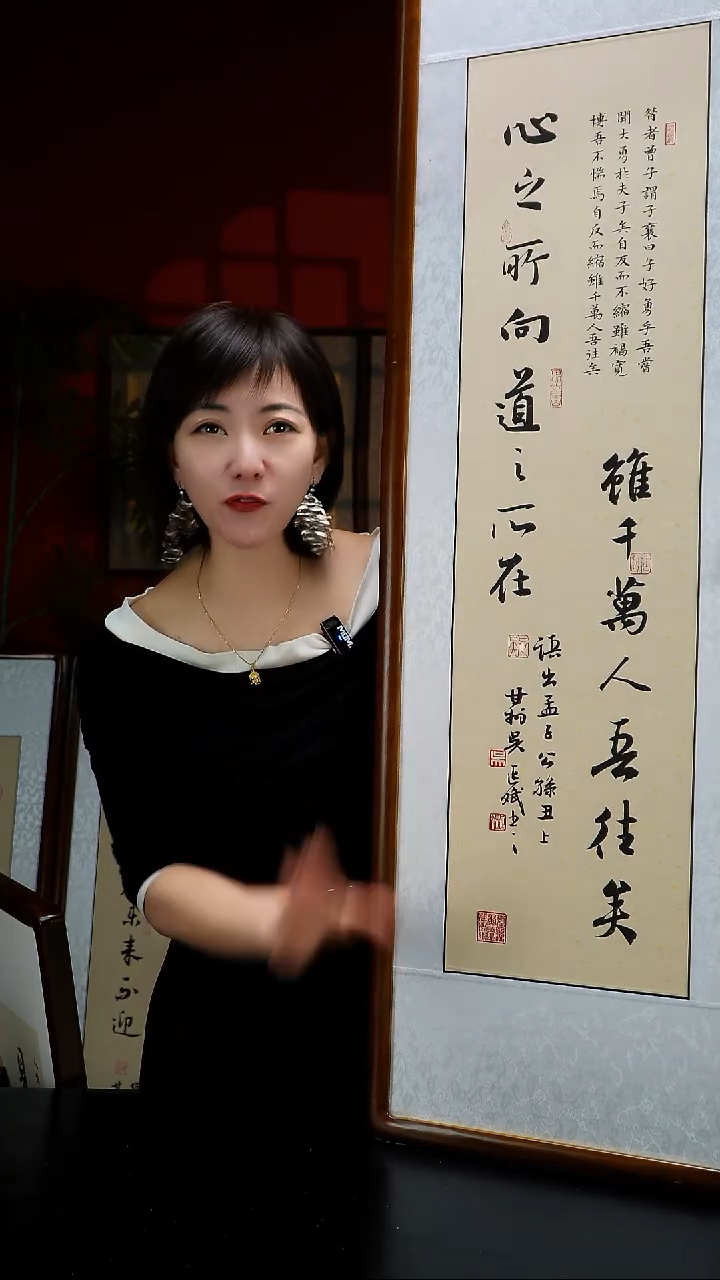 昔者曾子謂子襄曰子好勇乎吾嘗
聞大勇於夫子矣自反而不縮雖褐寬
博吾不惴焉自反而縮雖千萬人吾往矣
雖千萬人吾往矣
心之所向道之所在
語出孟子公孫丑上
未来不迎